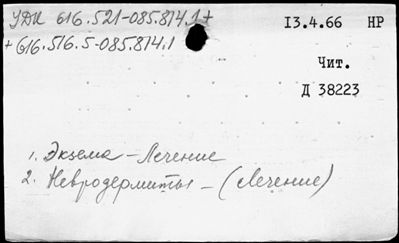 УДК 616.521-085.814.1+
+ 616.516.5-085.814.1
13.4.66 НР
Чит.
Д 38223
1. Экзема - Лечение
2. Невродермиты - (Лечение)